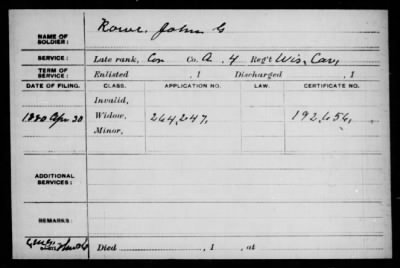 NAME OF SOLDIER: Rowe, John G
SERVICE: Late rank, Con Co. A, 4 Reg't Wis. Cav,
TERM OF SERVICE: Enlisted , 1 Discharged , 1
DATE OF FILING. CLASS. APPLICATION NO. LAW. CERTIFICATE NO.
Invalid,
1880 Apr 30 Widow, 264,247, 192,656,
Minor,
ADDITIONAL SERVICES:
REMARKS:
Died , 1 , at